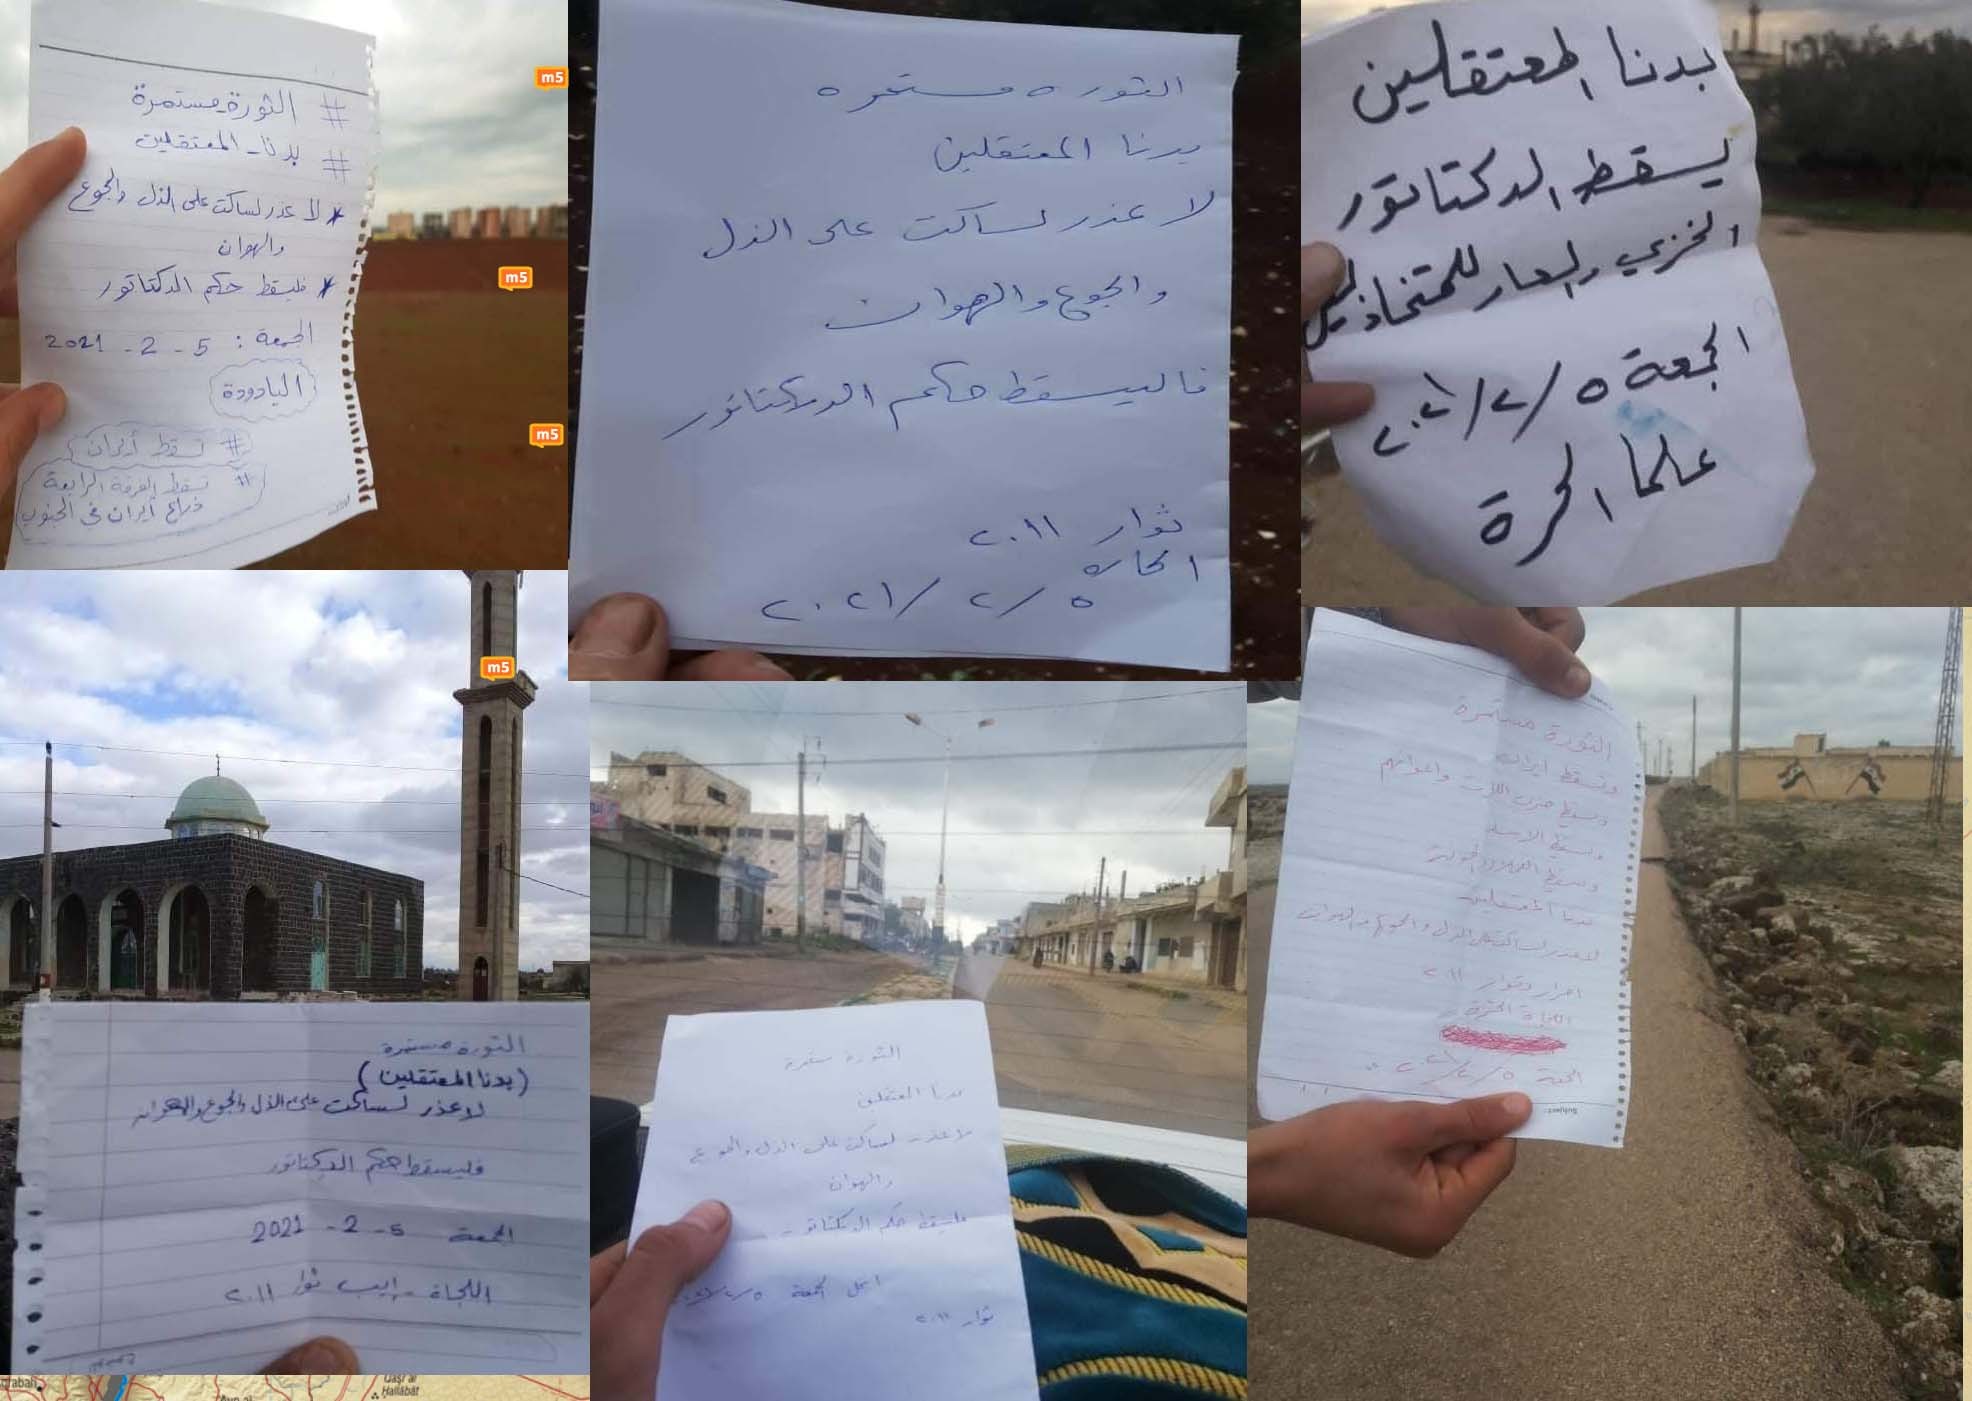 # الثورة_مستمرة
# بدنا_المعتقلين
* لا عذر لساكت على الذل والجوع
والهوان
* فليسقط حكم الدكتاتور
الجمعة : 5 - 2 - 2021
اليادودة
# تسقط أيران
# تسقط الفرقة الرابعة
ذراع أيران في الجنوب
m5
m5
m5
الثوره مستمره
بدنا المعتقلين
لا عذر لساكت على الذل
والجوع والهوان
فاليسقط حكم الدكتاتور
ثوار ٢٠١١
الحاره
٥ / ٢ / ٢٠٢١
بدنا المعتقلين
ليسقط الدكتاتور
الخزي والعار للمتخاذلين
الجمعة ٥ / ٢ / ٢٠٢١
علما الحرة
m5
الثورة مستمرة
(بدنا المعتقلين)
لا عذر لساكت على الذل والجوع والهوان
فليسقط حكم الدكتاتور
الجمعة 5 - 2 - 2021
اللجاة - ايب ثوار ٢٠١١
الثورة مستمرة
بدنا المعتقلين
لا عذر لساكت على الذل والجوع
والهوان
فليسقط حكم الدكتاتور
الجمعة ٥/٢/
ثوار ٢٠١١
الثورة مستمرة
وتسقط ايران
ويسقط حزب اللات واعوانهم
ويسقط الاسد
ويسقط العملاء والخونة
بدنا المعتقلين
لا عذر لساكت على الذل والجوع والهوان
احرار وثوار ٢٠١١
الحرة
الجمعة ٥/٢/٢٠٢١
Subject:
Qaşr al
Ḩallābāt